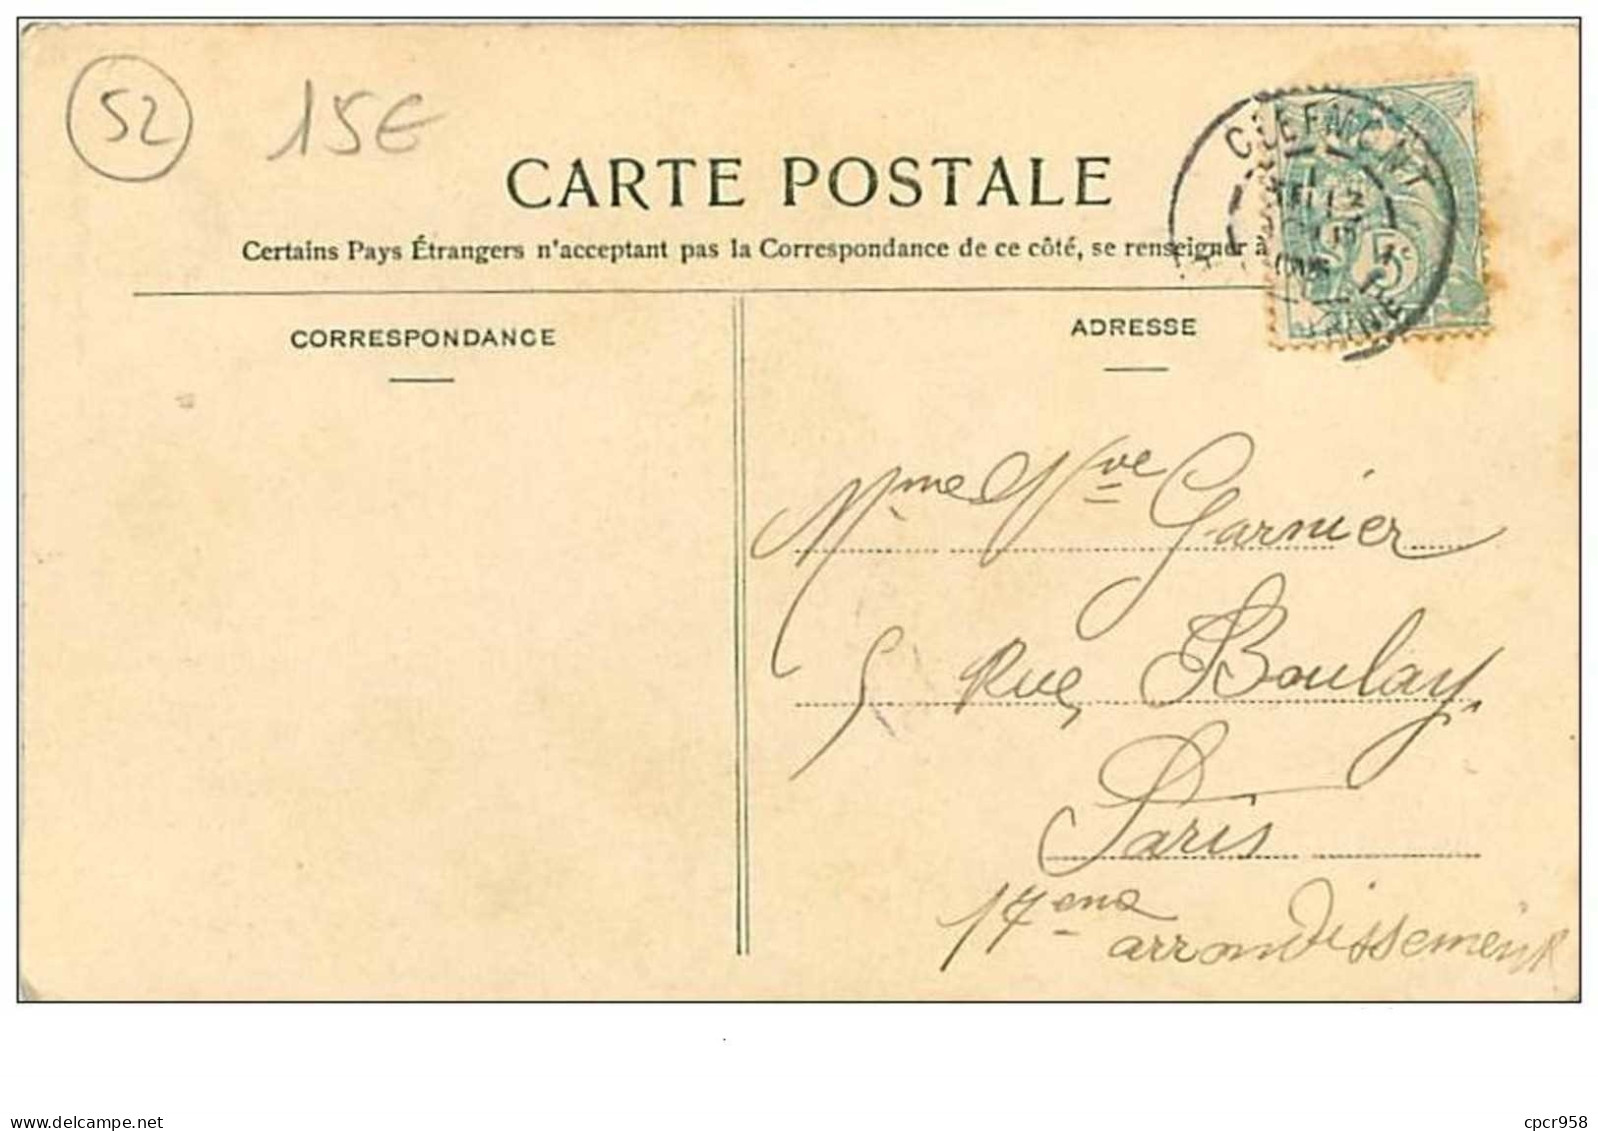 52 15€
CARTE POSTALE
Certains Pays Étrangers n'acceptant pas la Correspondance de ce côté, se renseigner à
CORRESPONDANCE
ADRESSE
CLERMONT
5c
Mme Vve Garnier
5 Rue Boulay
Paris
17eme
arrondissement
delcampe.net
cpcr958